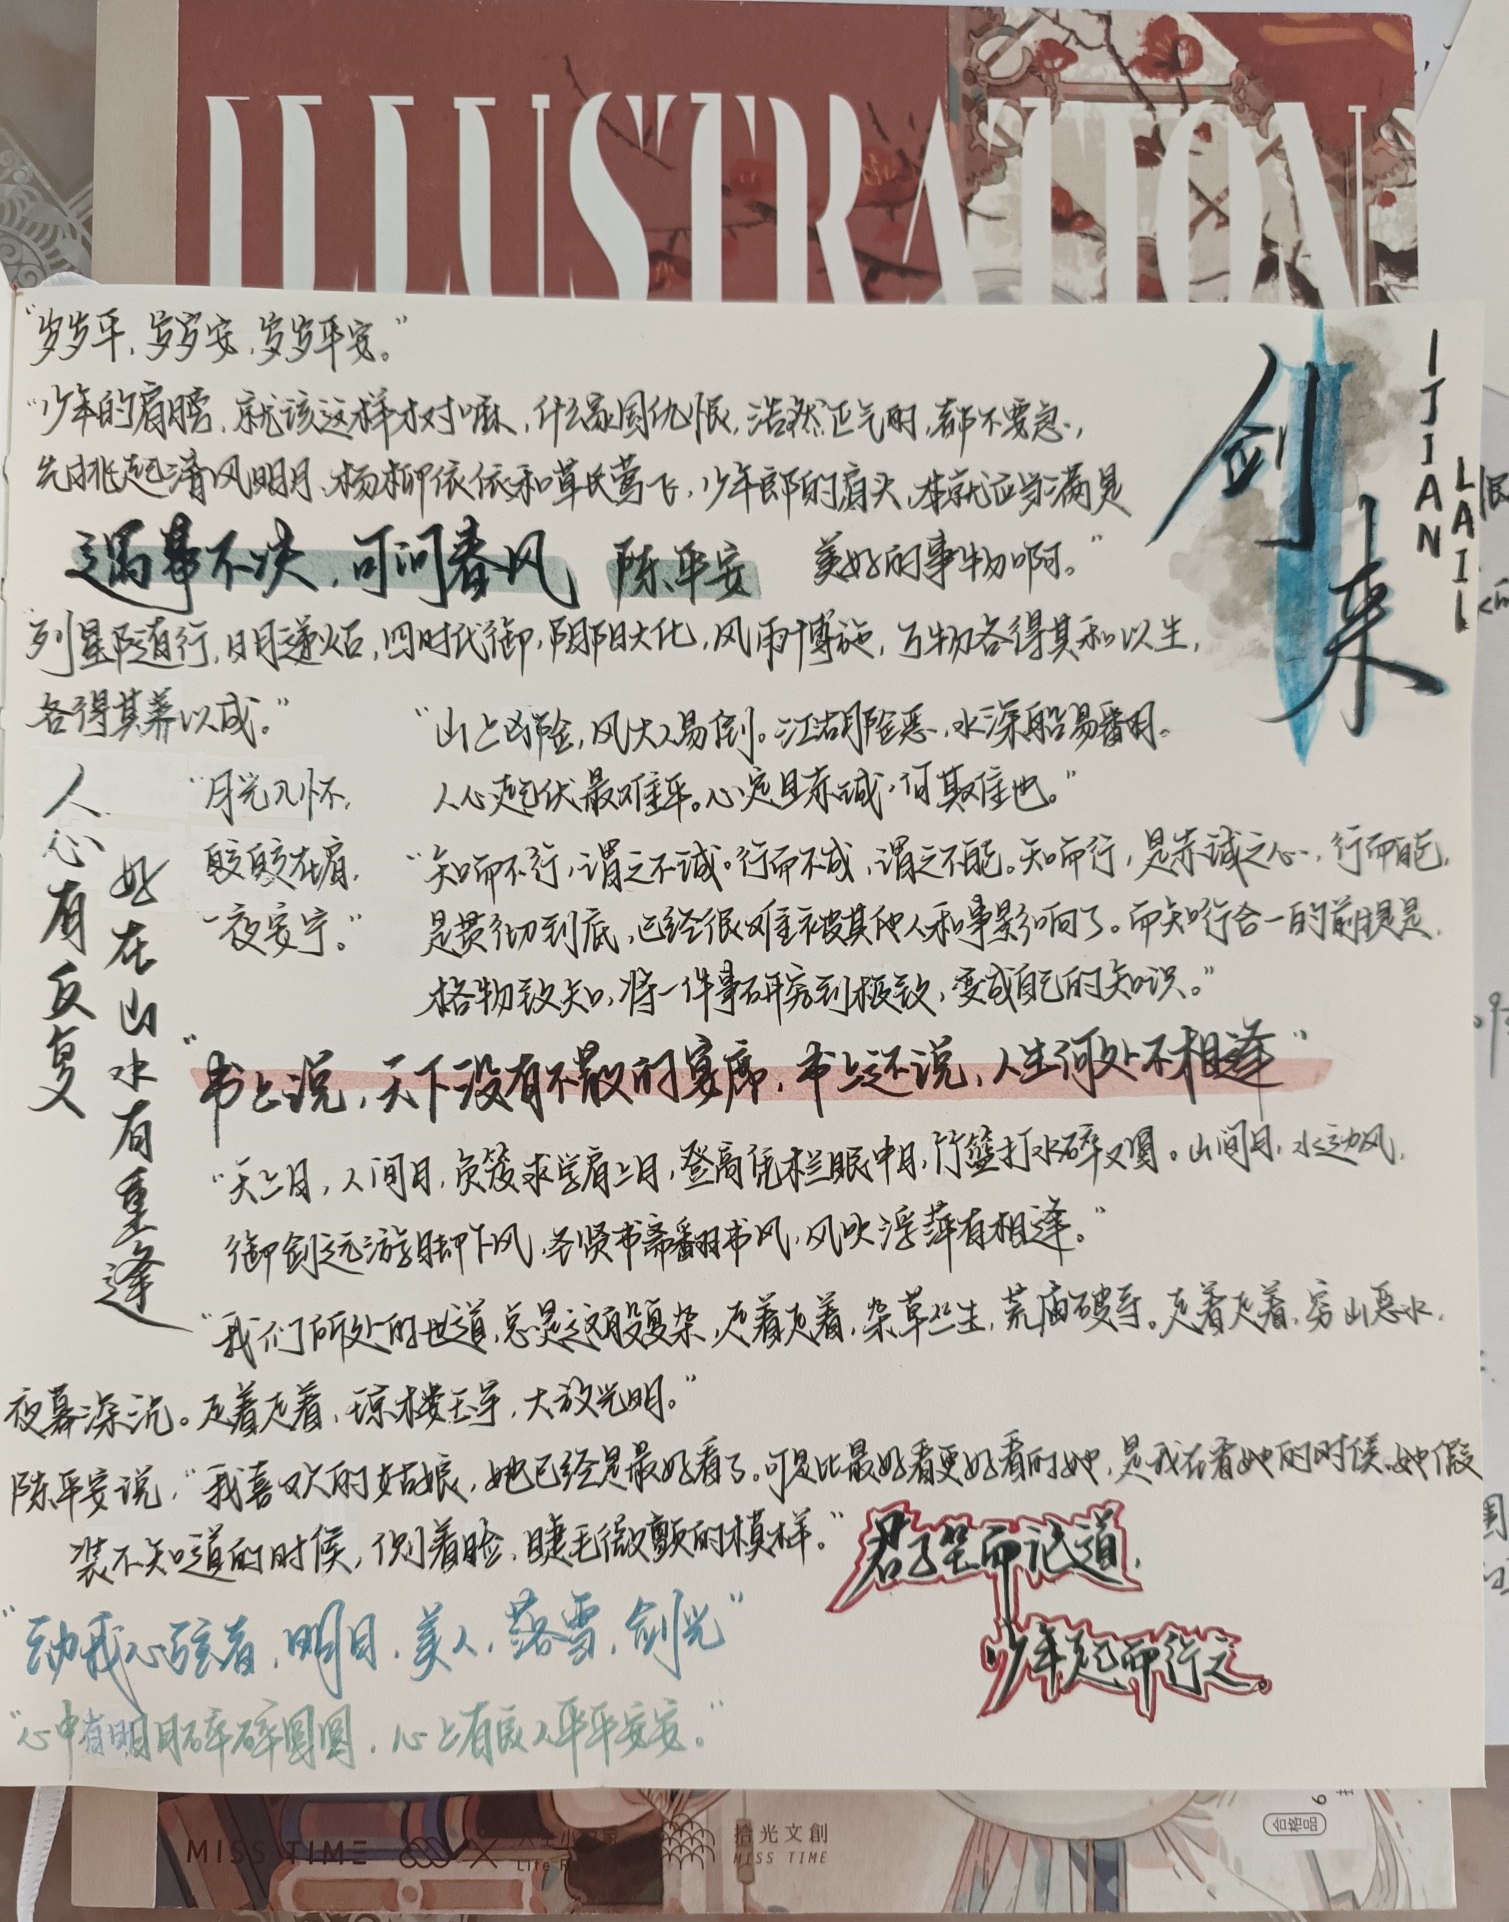 ILLUSTRATION
"岁岁平,岁岁安,岁岁平安。"
"少年的肩膀,就该这样才对嘛,什么家国仇恨,浩然正气的,都不要急,
先挑起清风明月、杨柳依依和草长莺飞,少年郎的肩头,本就应当满是
美好的事物啊。"
剑来
IJIAN
LAII
遇事不决,可问春风 陈平安
"列星随行,日月递炤,四时代御,阴阳大化,风雨博施,万物各得其和以生,
各得其养以成。"
"山上凶险,风大易倒。江湖险恶,水深船易翻。
人心起伏最难平。心定且赤诚,何其难也。"
"月光入怀,
皎皎在肩,
一夜安宁。"
人心有反复
好在山水有重逢
"知而不行,谓之不诚。行而不成,谓之不能。知而行,是赤诚之心,行而能,
是贯彻到底,已经很难被其他人和事影响了。而知行合一的前提是,
格物致知,将一件事研究到极致,变成自己的知识。"
"书上说,天下没有不散的宴席,书上还说,人生何处不相逢"
"天上月,人间月,负笈求学肩上月,登高凭栏眼中月,竹篮打水碎又圆。山间风,水边风,
御剑远游脚下风,圣贤书斋翻书风,风吹浮萍有相逢。"
"我们所处的世道,总是这般复杂,走着走着,杂草丛生,荒庙破寺。走着走着,穷山恶水,
夜幕深沉。走着走着,琼楼玉宇,大放光明。"
陈平安说,"我喜欢的姑娘,她已经是最好看了。可是比最好看更好看的她,是我在看她的时候,她假
装不知道的时候,侧着脸,睫毛微颤的模样。"
君子坐而论道,
少年起而行之。
"动我心弦者,明月,美人,落雪,剑光"
"心中有明月碎碎圆圆,心上有良人平平安安。"
MISS TIME
拾光文創
MISS TIME
合格品